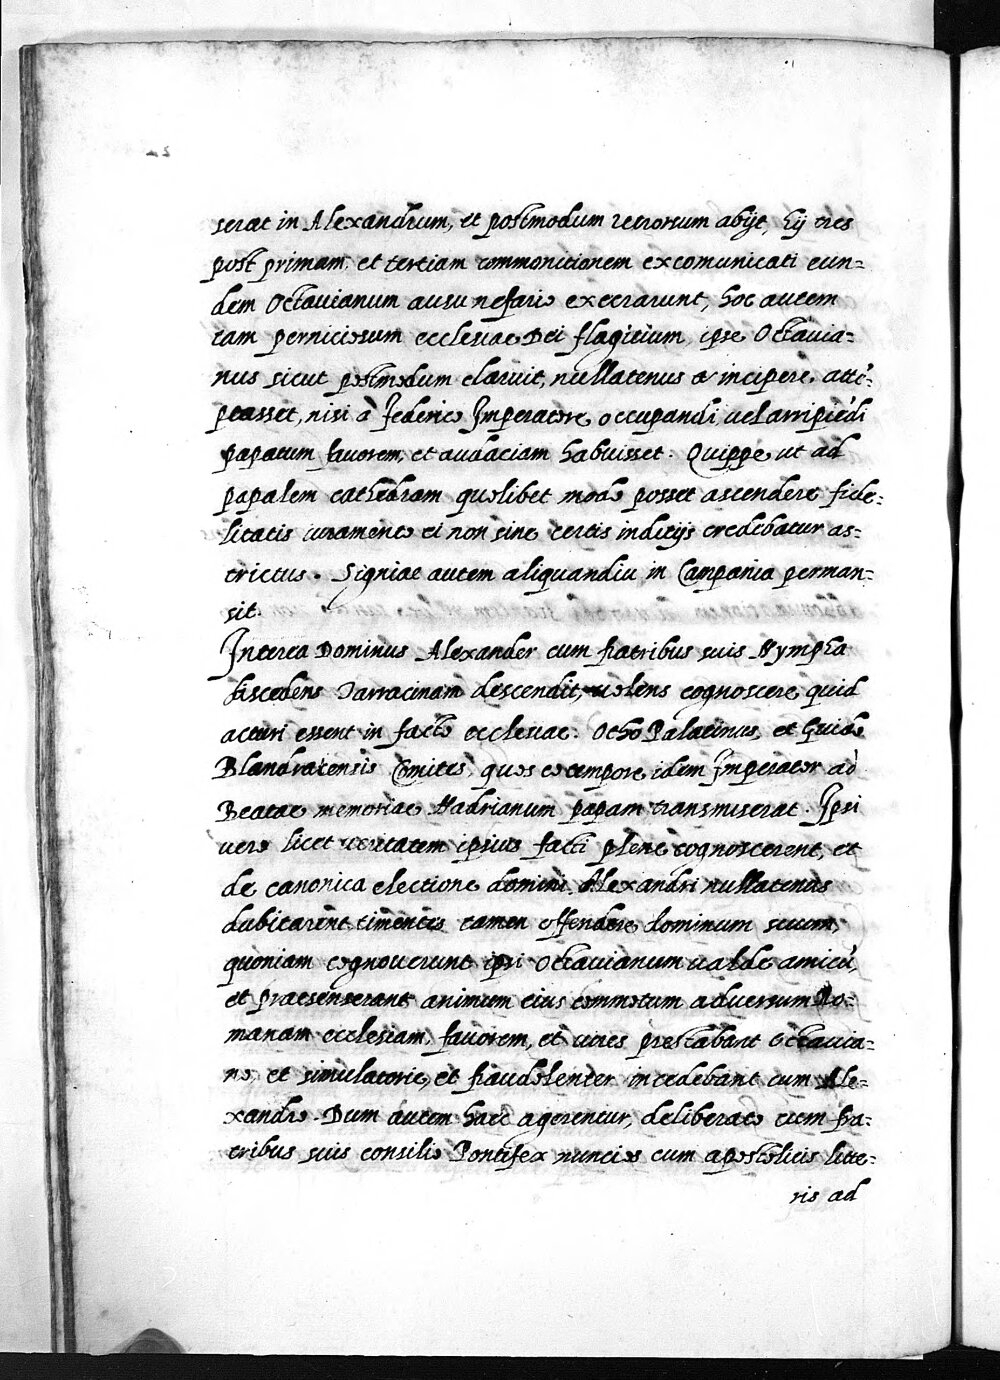 serat in Alexandrum, et postmodum retrorsum abijt, hij tres
post primam, et tertiam commonitionem excomunicati eun=
dem Octauianum ausu nefario execrarunt, hoc autem
tam perniciosum ecclesiae Dei flagitium, ipse Octauia=
nus sicut postmodum claruit, nullatenus incipere, attē=
ptasset, nisi á Federico Imperatore, occupandi uel arripiēdi
papatum fauorem, et audaciam habuisset. Quippe ut ad
papalem cathedram quolibet modo posset ascendere fide=
litatis iuramento ei non sine certis inditijs credebatur as=
trictus. Signiae autem aliquandiu in Campania perman=
sit.
Interea Dominus Alexander cum fratribus suis Nympha
discedens Tarracinam descendit, uolens cognoscere, quid
acturi essent in facto ecclesiae. Otho Palatinus, et Guido
Blandratensis Comites, quos eo tempore idem Imperator ad
Beatae memoriae Hadrianum papam transmiserat. Ipsi
uero licet ueritatem ipsius facti plene cognoscerent, et
de canonica electione domini Alexandri nullatenus
dubitarent, timentes tamen offendere dominum suum,
quoniam cognouerunt ipsi Octauianum ualde amicū,
et praesenserant animum eius commotum aduersum Ro=
manam ecclesiam, fauorem, et uires prestabant Octauia=
no, et simulatorie, et fraudolenter incedebant cum Ale=
xandro. Dum autem haec agerentur, deliberato cum fra=
tribus suis consilio Pontifex nuncios cum apostolicis litte=
ris ad